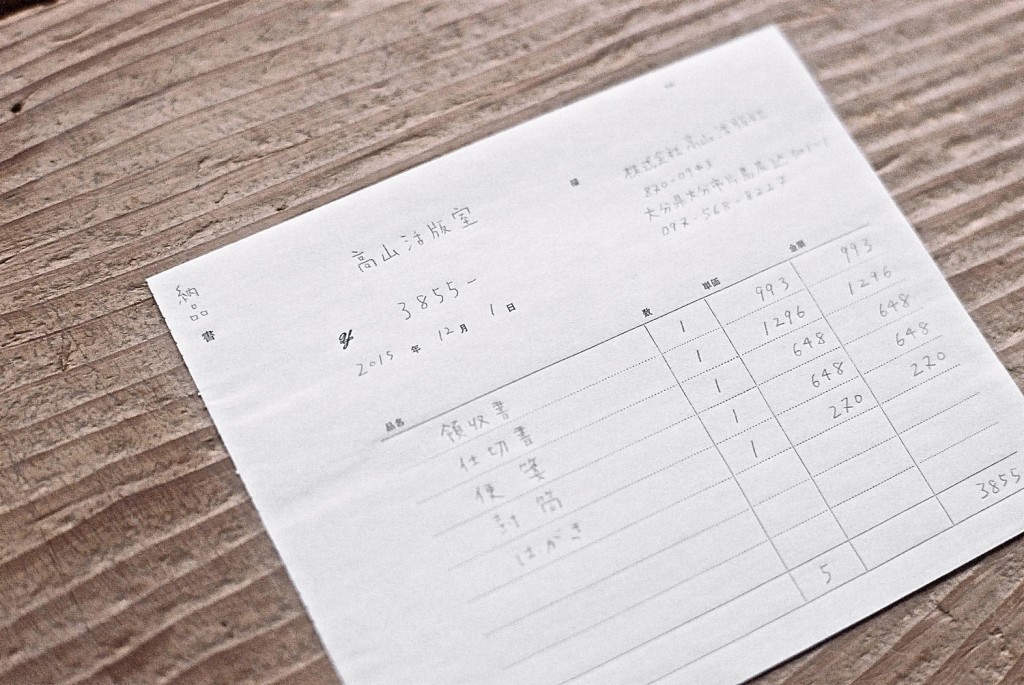 納品書
高山活版室 様
3855-
2015年 12月 1日
株式会社 高山活版社
870-0943
大分県大分市
097-568-8227
品名 数 単価 金額
領収書 1 993 993
仕切書 1 1296 1296
便箋 1 648 648
封筒 1 648 648
はがき 1 270 270
5 3855